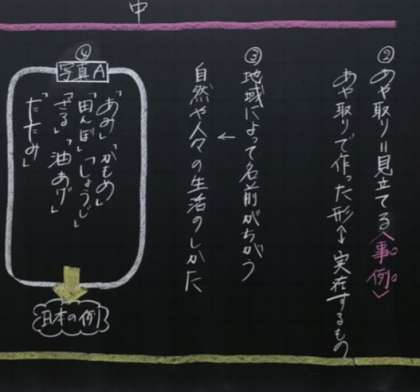 中
② あや取り=見立てる〈事例〉
あや取りで作った形↔実在するもの
③ 地域によって名前がちがう
↑
自然や人々の生活のしかた
④
写真A
「あみ」「かもめ」
「田んぼ」「しょうじ」
「ざる」「油あげ」
「たたみ」
日本の例